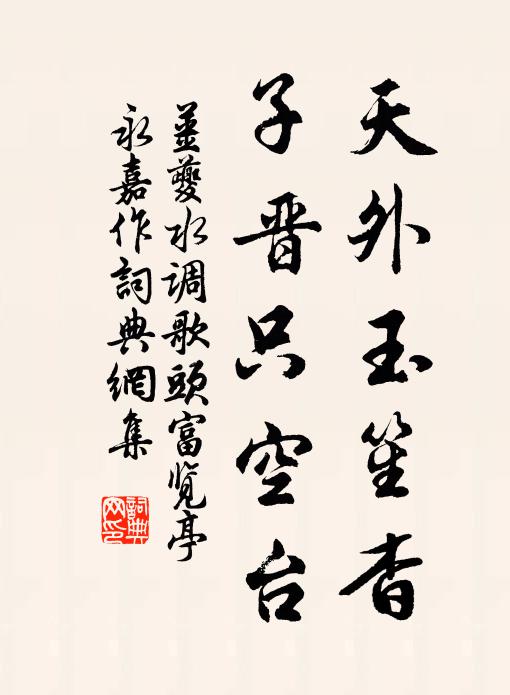 天外玉笙杳
子晋只空台
姜夔水调歌頭富览亭
永嘉作詞典網集
詞典
网印